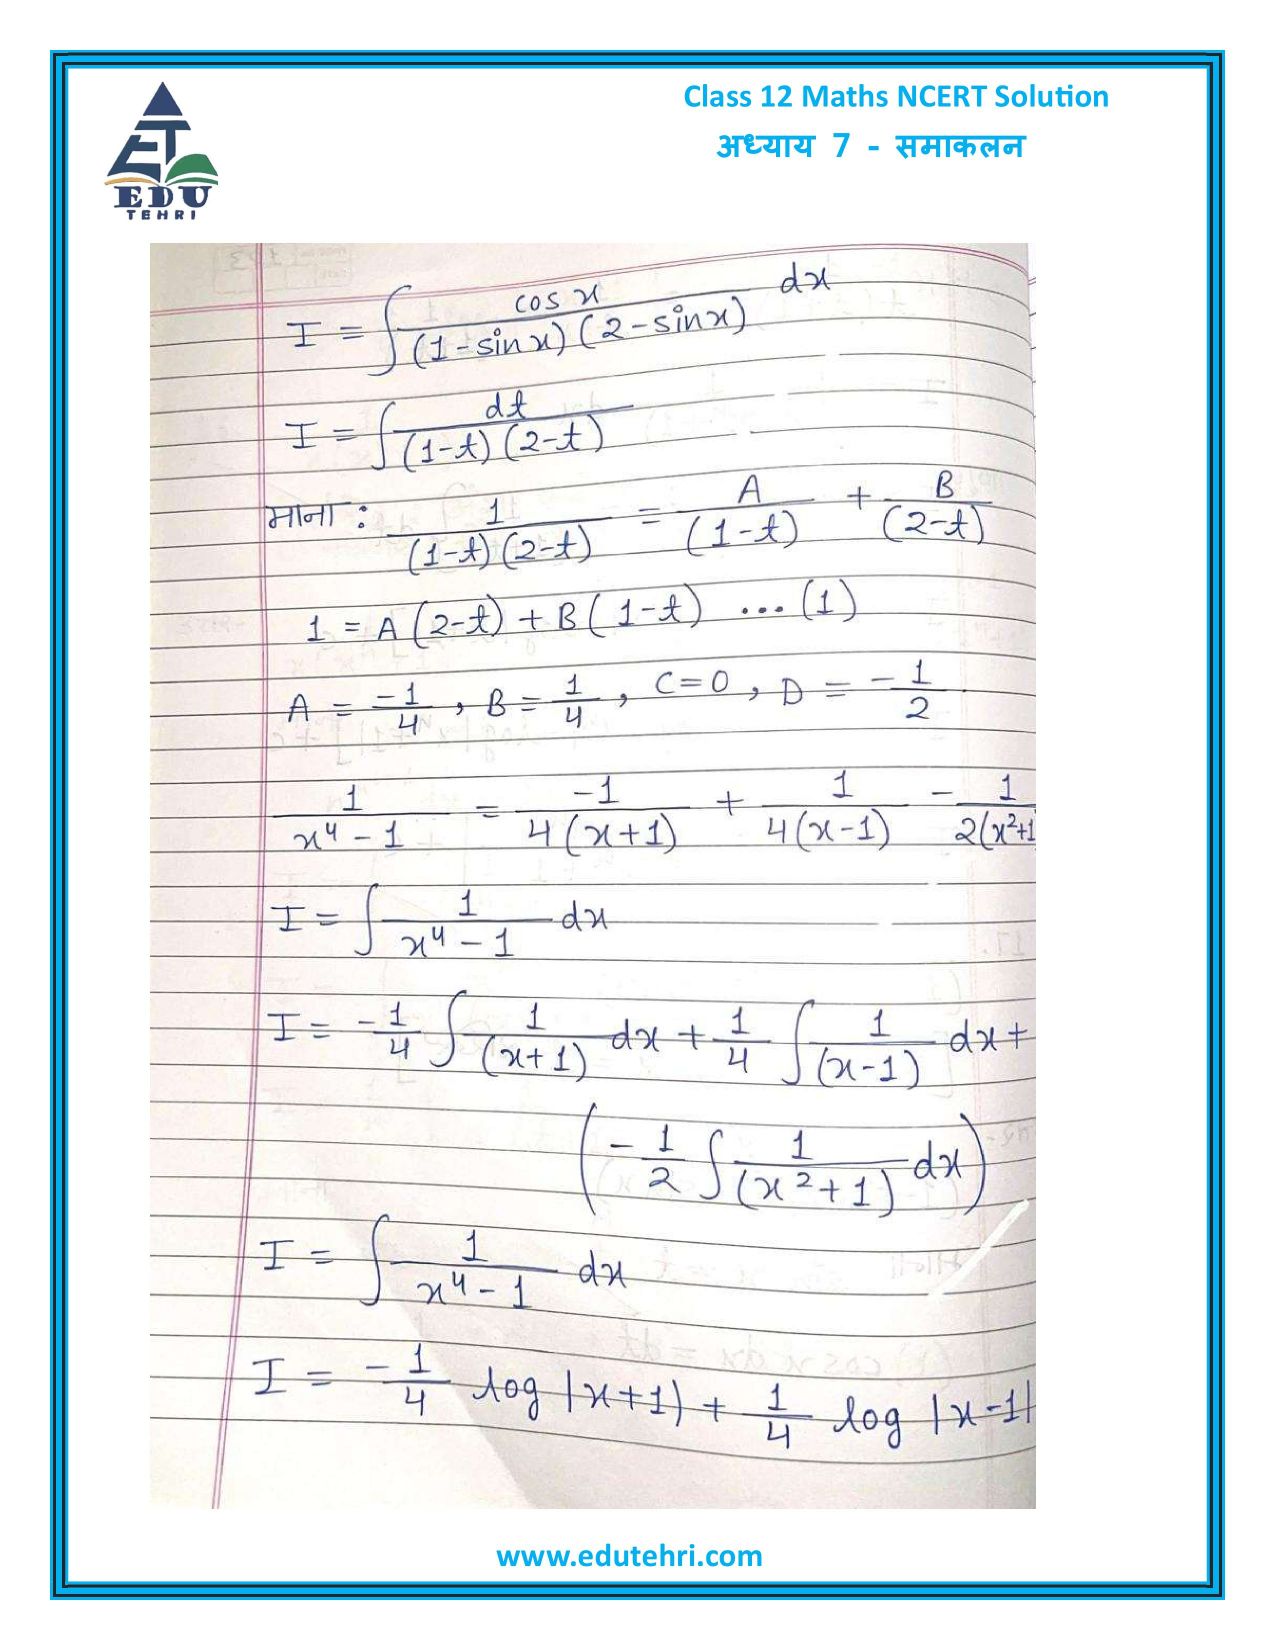 Class 12 Maths NCERT Solution
अध्याय 7 - समाकलन
EDU
TEHRI
I = ∫ cos x / (1-sin x)(2-sin x) dx
I = ∫ dt / (1-t)(2-t)
माना : 1 / (1-t)(2-t) = A / (1-t) + B / (2-t)
1 = A(2-t) + B(1-t) ...(1)
A = -1/4, B = 1/4, C=0, D = -1/2
1 / x⁴-1 = -1 / 4(x+1) + 1 / 4(x-1) - 1 / 2(x²+1
I = ∫ 1 / x⁴-1 dx
I = -1/4 ∫ 1 / (x+1) dx + 1/4 ∫ 1 / (x-1) dx +
(-1/2 ∫ 1 / (x²+1) dx)
I = ∫ 1 / x⁴-1 dx
I = -1/4 log |x+1| + 1/4 log |x-1|
www.edutehri.com